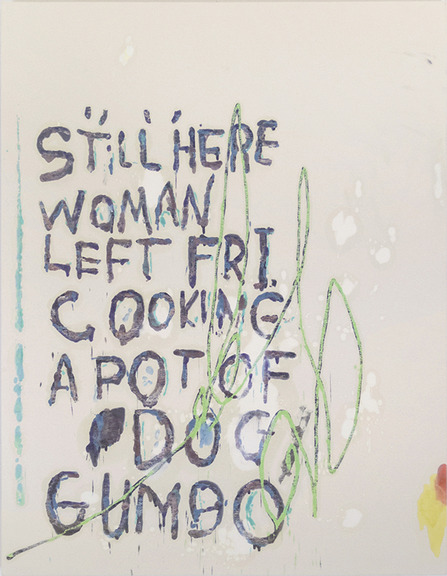 STILL HERE
WOMAN
LEFT FRI
COOKING
A POT OF
DOG
GUMBO